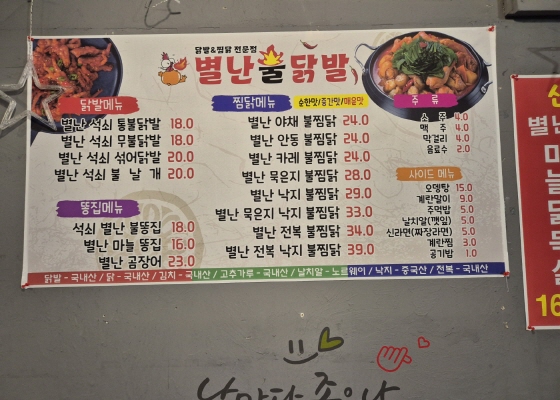 닭발&찜닭 전문점
별난불닭발
닭발메뉴
별난 석쇠 통불닭발 18.0
별난 석쇠 무불닭발 18.0
별난 석쇠 섞어닭발 20.0
별난 석쇠 불 날 개 20.0
똥집메뉴
석쇠 별난 불똥집 18.0
별난 마늘 똥집 16.0
별난 곰장어 23.0
찜닭메뉴 순한맛/중간맛/매운맛
별난 야채 불찜닭 24.0
별난 안동 불찜닭 24.0
별난 카레 불찜닭 24.0
별난 묵은지 불찜닭 28.0
별난 낙지 불찜닭 29.0
별난 묵은지 낙지 불찜닭 33.0
별난 전복 불찜닭 34.0
별난 전복 낙지 불찜닭 39.0
주 류
소 주 4.0
맥 주 4.0
막걸리 4.0
음료수 2.0
사이드 메뉴
오뎅탕 15.0
계란말이 9.0
주먹밥 5.0
날치알(깻잎) 5.0
신라면(짜장라면) 5.0
계란찜 3.0
공기밥 1.0
닭발 - 국내산 / 닭 - 국내산 / 김치 - 국내산 / 고추가루 - 국내산 / 날치알 - 노르웨이 / 낙지 - 중국산 / 전복 - 국내산